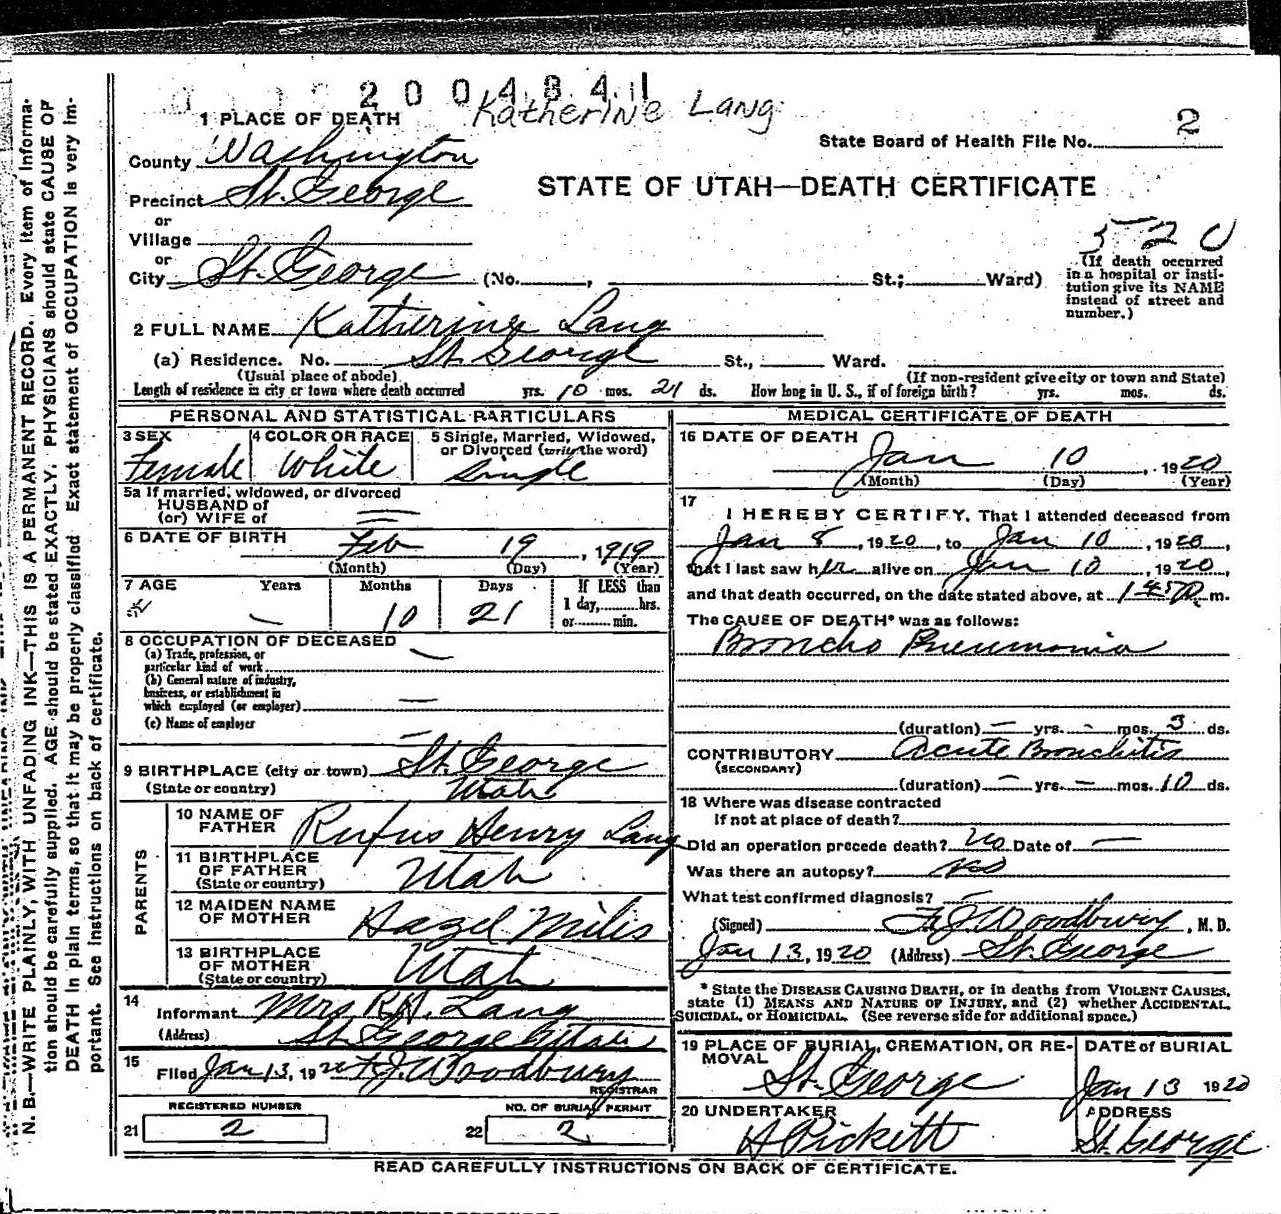 2004841
Katherine Lang
1 PLACE OF DEATH
State Board of Health File No. 2
County Washington
STATE OF UTAH—DEATH CERTIFICATE
Precinct St. George
or
Village
520
or
City St. George (No. , St.; Ward)
(If death occurred in a hospital or institution give its NAME instead of street and number.)
2 FULL NAME Katherine Lang
(a) Residence. No. St. George St., Ward.
(Usual place of abode) (If non-resident give city or town and State)
Length of residence in city or town where death occurred yrs. 10 mos. 21 ds. How long in U. S., if of foreign birth? yrs. mos. ds.
PERSONAL AND STATISTICAL PARTICULARS
3 SEX Female
4 COLOR OR RACE White
5 Single, Married, Widowed, or Divorced (write the word) Single
5a If married, widowed, or divorced
HUSBAND of
(or) WIFE of
6 DATE OF BIRTH Feb 19, 1919
(Month) (Day) (Year)
7 AGE Years Months Days If LESS than
— 10 21 1 day, hrs.
or min.
8 OCCUPATION OF DECEASED
(a) Trade, profession, or
particular kind of work —
(b) General nature of industry,
business, or establishment in
which employed (or employer) —
(c) Name of employer —
9 BIRTHPLACE (city or town) St. George
(State or country) Utah
PARENTS
10 NAME OF FATHER Rufus Henry Lang
11 BIRTHPLACE OF FATHER (State or country) Utah
12 MAIDEN NAME OF MOTHER Hazel Miles
13 BIRTHPLACE OF MOTHER (State or country) Utah
14 Informant Mrs R.H. Lang
(Address) St. George Utah
15 Filed Jan 13, 1920 F.J. Woodbury
REGISTRAR
REGISTERED NUMBER
21 2
NO. OF BURIAL PERMIT
22 2
MEDICAL CERTIFICATE OF DEATH
16 DATE OF DEATH Jan 10, 1920
(Month) (Day) (Year)
17 I HEREBY CERTIFY, That I attended deceased from
Jan 8, 1920, to Jan 10, 1920,
that I last saw her alive on Jan 10, 1920,
and that death occurred, on the date stated above, at m.
The CAUSE OF DEATH* was as follows:
Broncho Pneumonia
(duration) — yrs. - mos. 3 ds.
CONTRIBUTORY Acute Bronchitis
(SECONDARY)
(duration) — yrs. — mos. 10 ds.
18 Where was disease contracted
If not at place of death?
Did an operation precede death? No Date of —
Was there an autopsy? No
What test confirmed diagnosis? —
(Signed) F.J. Woodbury, M. D.
Jan 13, 1920 (Address) St. George
* State the DISEASE CAUSING DEATH, or in deaths from VIOLENT CAUSES,
state (1) MEANS AND NATURE OF INJURY, and (2) whether ACCIDENTAL,
SUICIDAL, or HOMICIDAL. (See reverse side for additional space.)
19 PLACE OF BURIAL, CREMATION, OR REMOVAL St. George
DATE of BURIAL Jan 13 1920
20 UNDERTAKER A Pickett
ADDRESS St. George
READ CAREFULLY INSTRUCTIONS ON BACK OF CERTIFICATE.
N. B.—WRITE PLAINLY, WITH UNFADING INK—THIS IS A PERMANENT RECORD. Every item of informa-
tion should be carefully supplied. AGE should be stated EXACTLY. PHYSICIANS should state CAUSE OF
DEATH in plain terms, so that it may be properly classified. Exact statement of OCCUPATION is very im-
portant. See instructions on back of certificate.